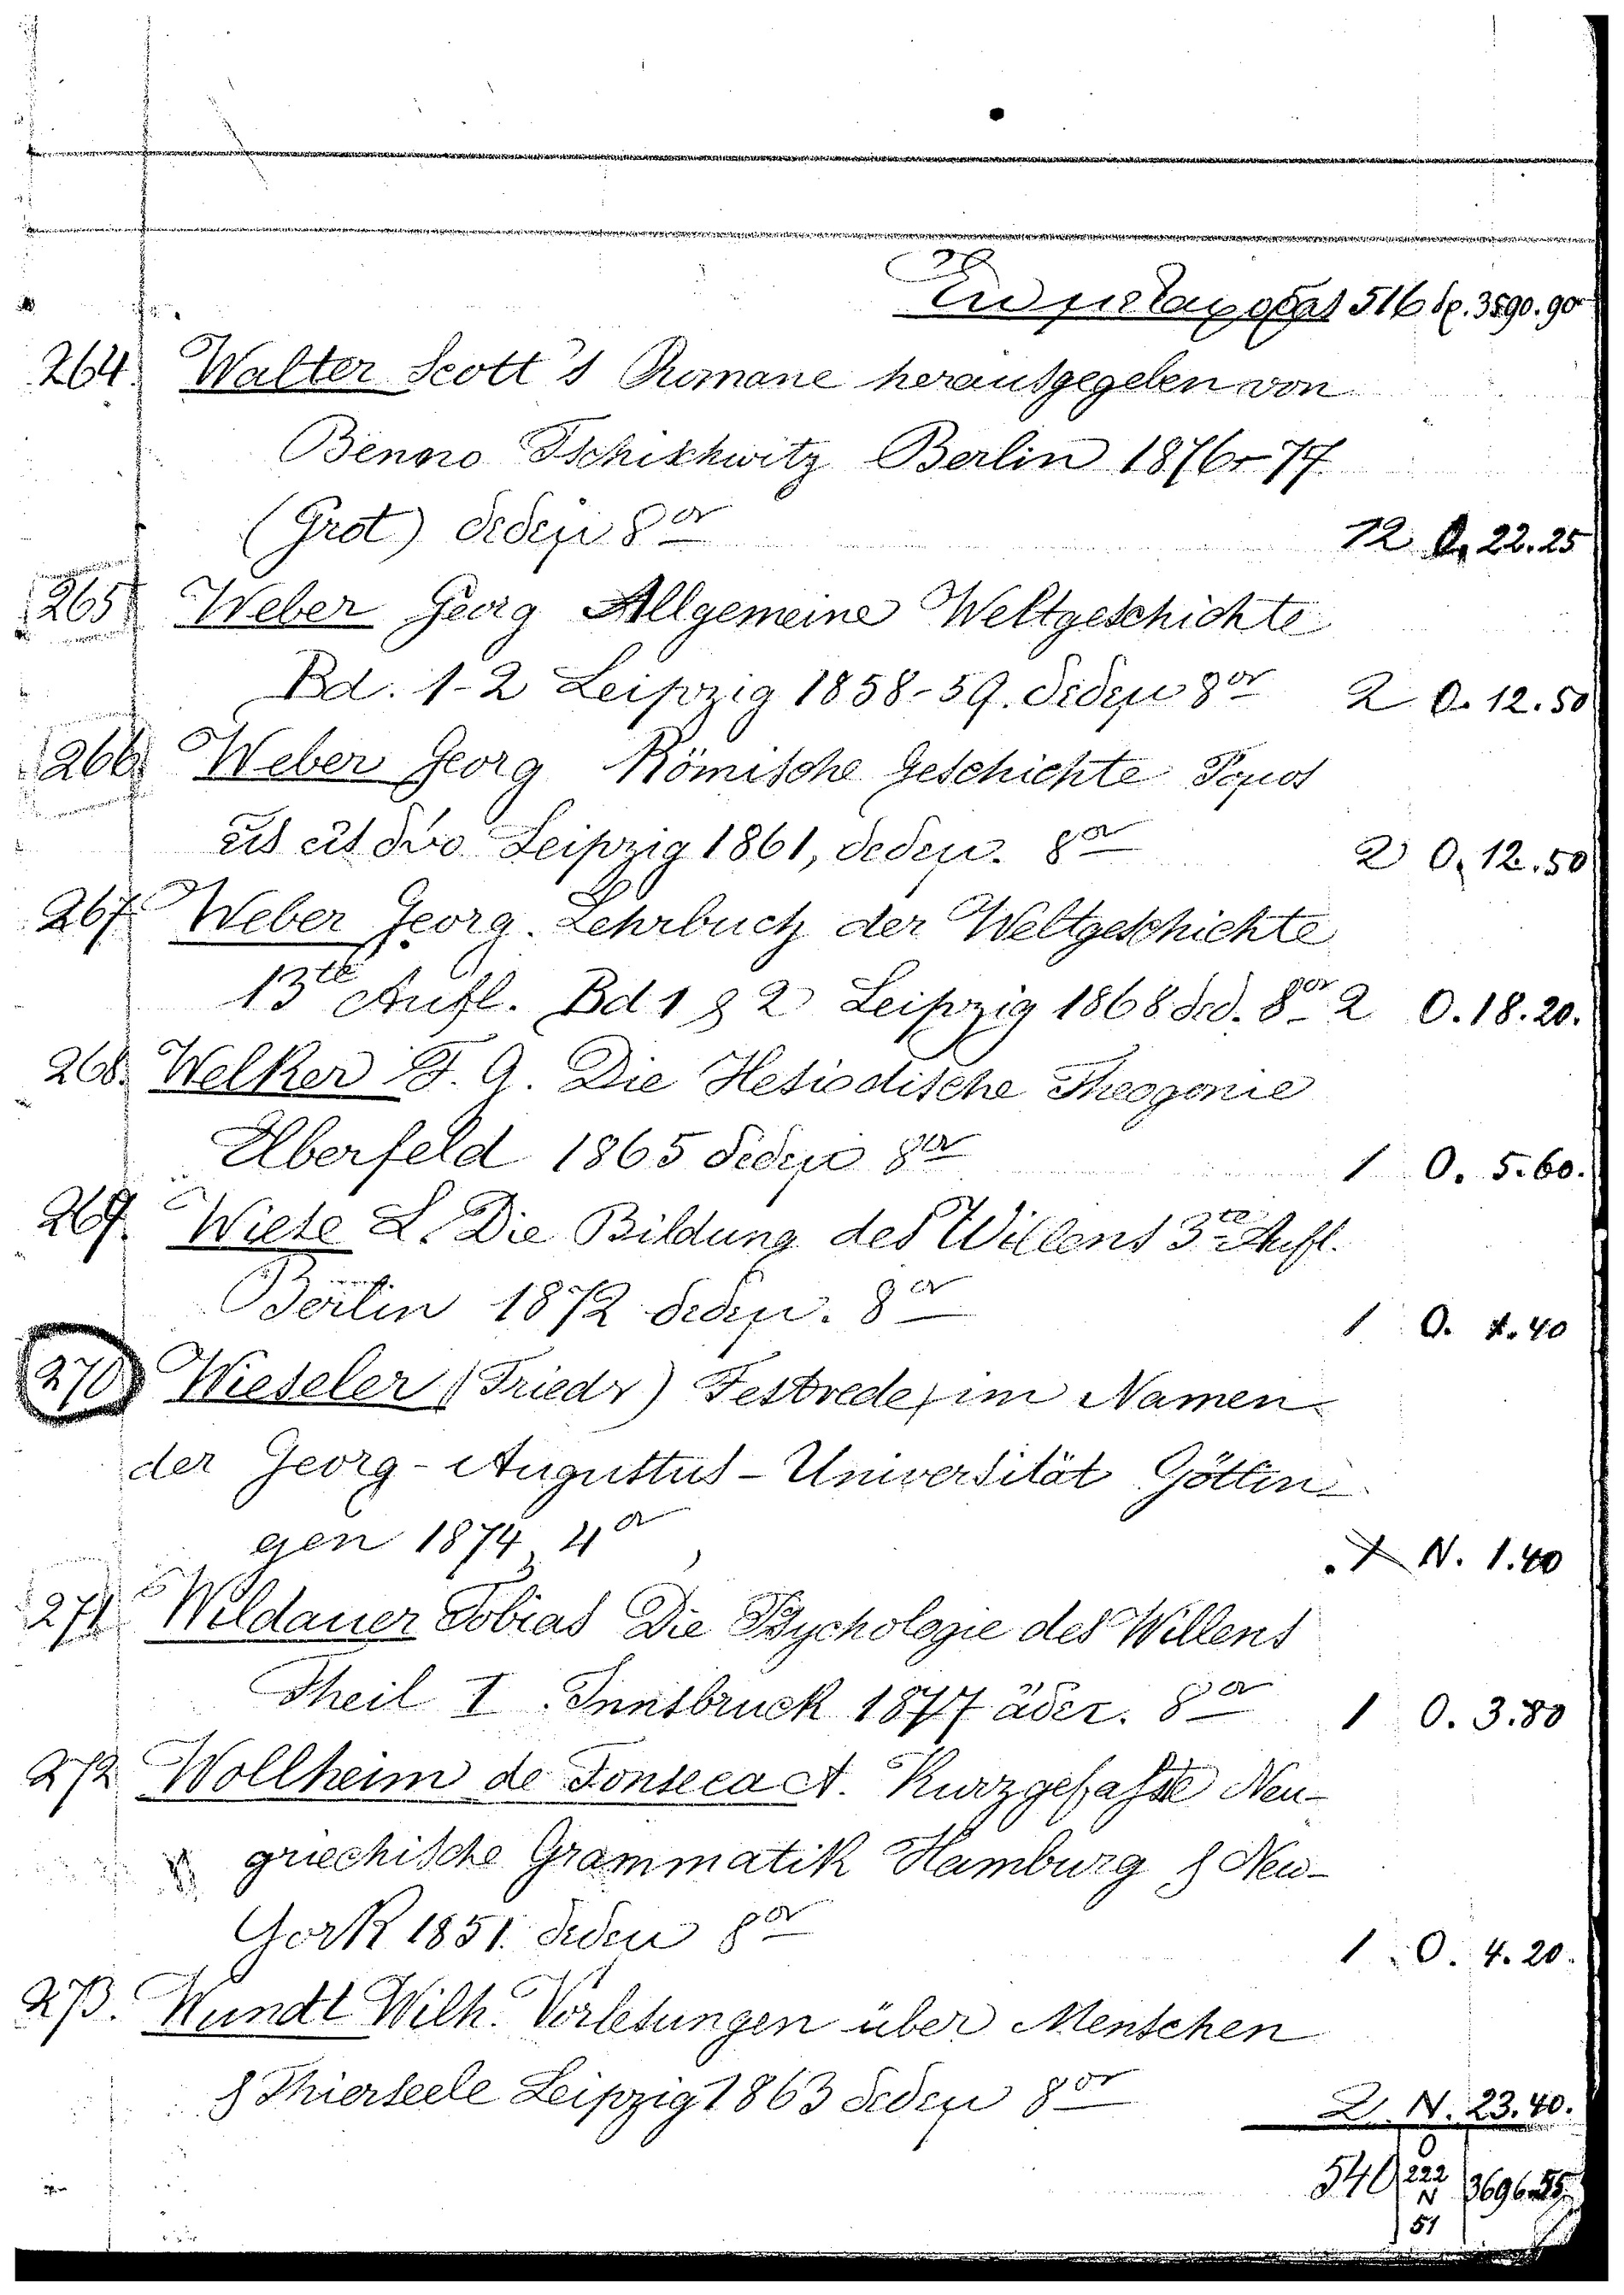 Ἐκ μεταφορᾶς 516 δρ. 3590.90
264. Walter Scott's Romane herausgegeben von
Benno Tschischwitz Berlin 1876-77
(Grot) δεδεμ 8ον 12 O. 22.25
265 Weber Georg Allgemeine Weltgeschichte
Bd. 1-2 Leipzig 1858-59. δεδεμ 8ον 2 O. 12.50
266. Weber Georg Römische Geschichte Τόμος
εἷς εἰς δύο Leipzig 1861, δεδεμ. 8ον 2 O. 12.50
267. Weber Georg. Lehrbuch der Weltgeschichte
13te Aufl. Bd 1 & 2 Leipzig 1868 δεδ. 8ον 2 O. 18.20.
268. Welker F. G. Die Hesiodische Theogonie
Elberfeld 1865 δεδεμ 8ον 1 O. 5.60.
269. Wiese L. Die Bildung des Willens 3te Aufl.
Berlin 1872 δεδεμ. 8ον 1 O. .40
270 Wieseler (Friedr) Festrede, im Namen
der Georg-Augustus-Universität Göttin-
gen 1874, 4ον 1 N. 1.40
271 Wildauer Tobias Die Psychologie des Willens
Theil I. Innsbruck 1877 ἄδετ. 8ον 1 O. 3.80
272 Wollheim de Fonseca A. Kurzgefaßte Neu-
griechische Grammatik Hamburg & New-
York 1851. δεδεμ 8ον 1 O. 4.20.
273. Wundt Wilh. Vorlesungen über Menschen
& Thierseele Leipzig 1863 δεδεμ 8ον 2 N. 23.40.
O
540 222 3696.55
N
51